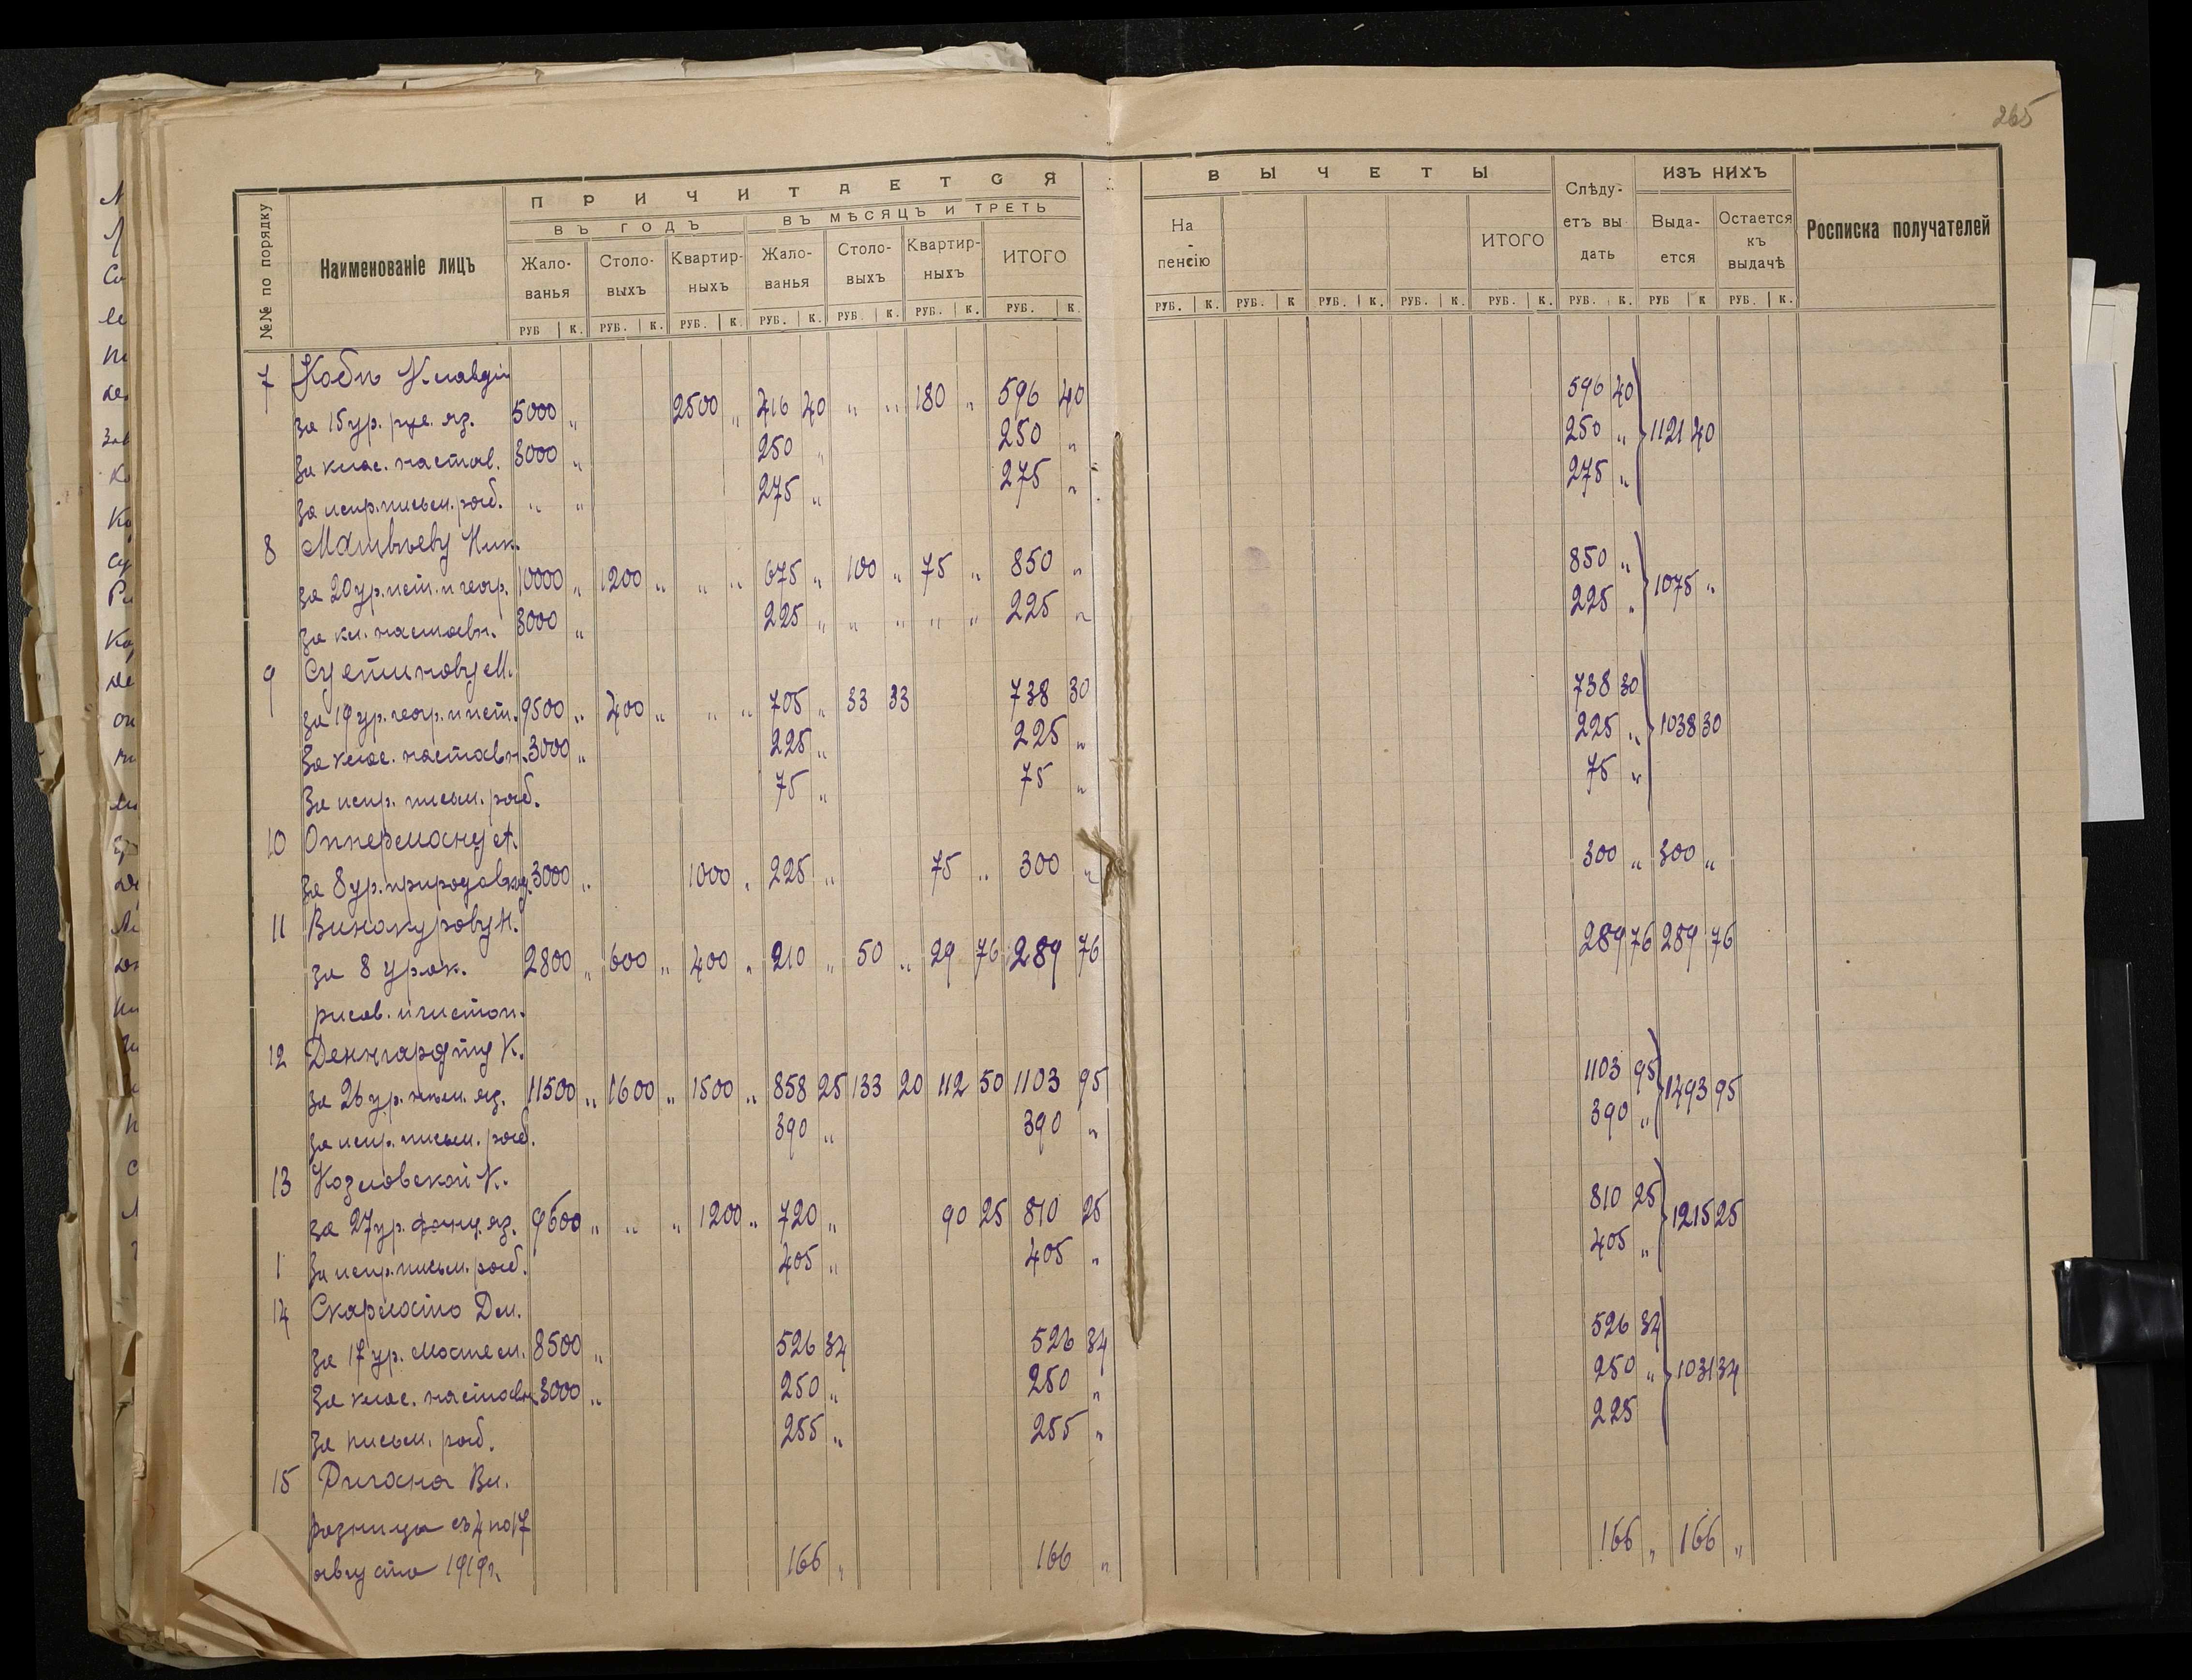 265
№№ по порядку
Наименованіе лицъ
ПРИЧИТАЕТСЯ
ВЪ ГОДЪ
ВЪ МѢСЯЦЪ И ТРЕТЬ
Жало-ванья
Столо-выхъ
Квартир-ныхъ
Жало-ванья
Столо-выхъ
Квартир-ныхъ
ИТОГО
РУБ К. РУБ. К. РУБ. К. РУБ. К. РУБ. К. РУБ. К. РУБ. К.
ВЫЧЕТЫ
На пенсію
ИТОГО
Слѣду-етъ вы дать
ИЗЪ НИХЪ
Выда-ется
Остается къ выдачѣ
Росписка получателей
РУБ. К. РУБ. К РУБ. К. РУБ. К. РУБ. К. РУБ. К. РУБ К РУБ. К.
7 Кобъ Клавдіи
за 15 ур. рус. яз. 5000 „ 2500 „ 416 40 „ „ 180 „ 596 40 596 40
За клас. настав. 3000 „ 250 „ 250 „ 250 „ 1121 40
За испр. письм. раб. „ „ 275 „ 275 „ 275 „
8 Матвѣеву Ник.
за 20 ур. ист. и геогр. 10000 „ 1200 „ „ „ 675 „ 100 „ 75 „ 850 „ 850 „ 1075 „
за кл. наставн. 3000 „ 225 „ „ „ „ „ 225 „ 225 „
9 Суетинову М.
за 19 ур. геогр. и ист. 9500 „ 400 „ „ „ 705 „ 33 33 738 30 738 30
За клас. наставн. 3000 „ 225 „ 225 „ 225 „ 1038 30
За испр. письм. раб. 75 „ 75 „ 75 „
10 Опперману А.
за 8 ур. природовѣд. 3000 „ 1000 „ 225 „ 75 „ 300 „ 300 „ 300 „
11 Винокурову Н.
за 8 урок. 2800 „ 600 „ 400 „ 210 „ 50 „ 29 76 289 76 289 76 289 76
рисов. и чистоп.
12 Деннгардту К.
за 26 ур. нѣм. яз. 11500 „ 1600 „ 1500 „ 858 25 133 20 112 50 1103 95 1103 95 1493 95
за испр. письм. раб. 390 „ 390 „ 390 „
13 Козловской К.
за 27 ур. франц. яз. 9600 „ „ „ 1200 „ 720 „ 90 25 810 25 810 25 1215 25
1 За испр. письм. раб. 405 „ 405 „ 405 „
14 Скарлато Дм.
за 17 ур. матем. 8500 „ 526 34 526 34 526 34
За клас. наставн. 3000 „ 250 „ 250 „ 250 „ 1031 34
За письм. раб. 255 „ 255 „ 225
15 Ригана Вл.
разница съ 4 по 17
августа 1919 г. 166 „ 166 „ 166 „ 166 „